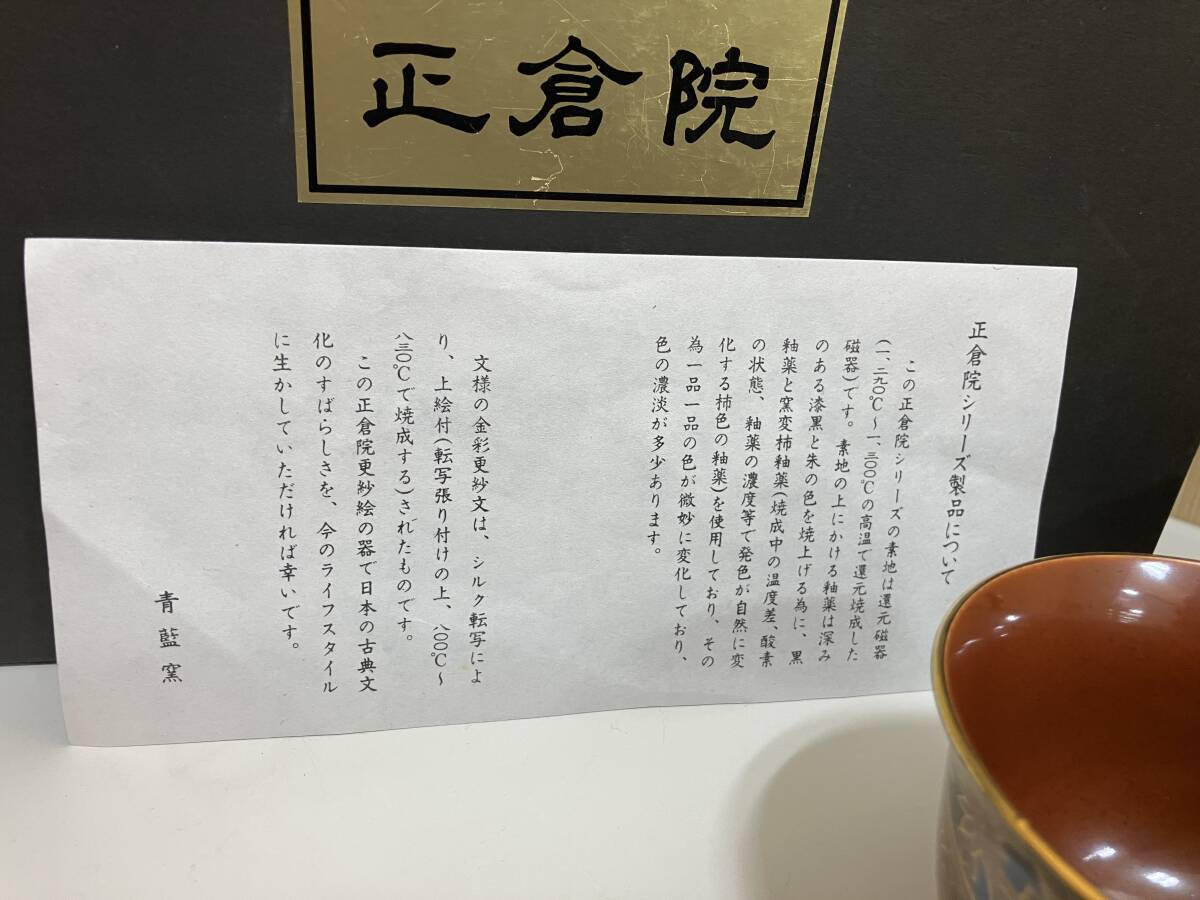 正倉院
正倉院シリーズ製品について
この正倉院シリーズの素地は還元磁器
(一、二九〇℃～一、三〇〇℃の高温で還元焼成した
磁器)です。素地の上にかける釉薬は深み
のある漆黒と朱の色を焼上げる為に、黒
釉薬と窯変柿釉薬(焼成中の温度差、酸素
の状態、釉薬の濃度等で発色が自然に変
化する柿色の釉薬)を使用しており、その
為一品一品の色が微妙に変化しており、
色の濃淡が多少あります。
文様の金彩更紗文は、シルク転写によ
り、上絵付(転写張り付けの上、八〇〇℃～
八三〇℃で焼成する)されたものです。
この正倉院更紗絵の器で日本の古典文
化のすばらしさを、今のライフスタイル
に生かしていただければ幸いです。
青藍窯